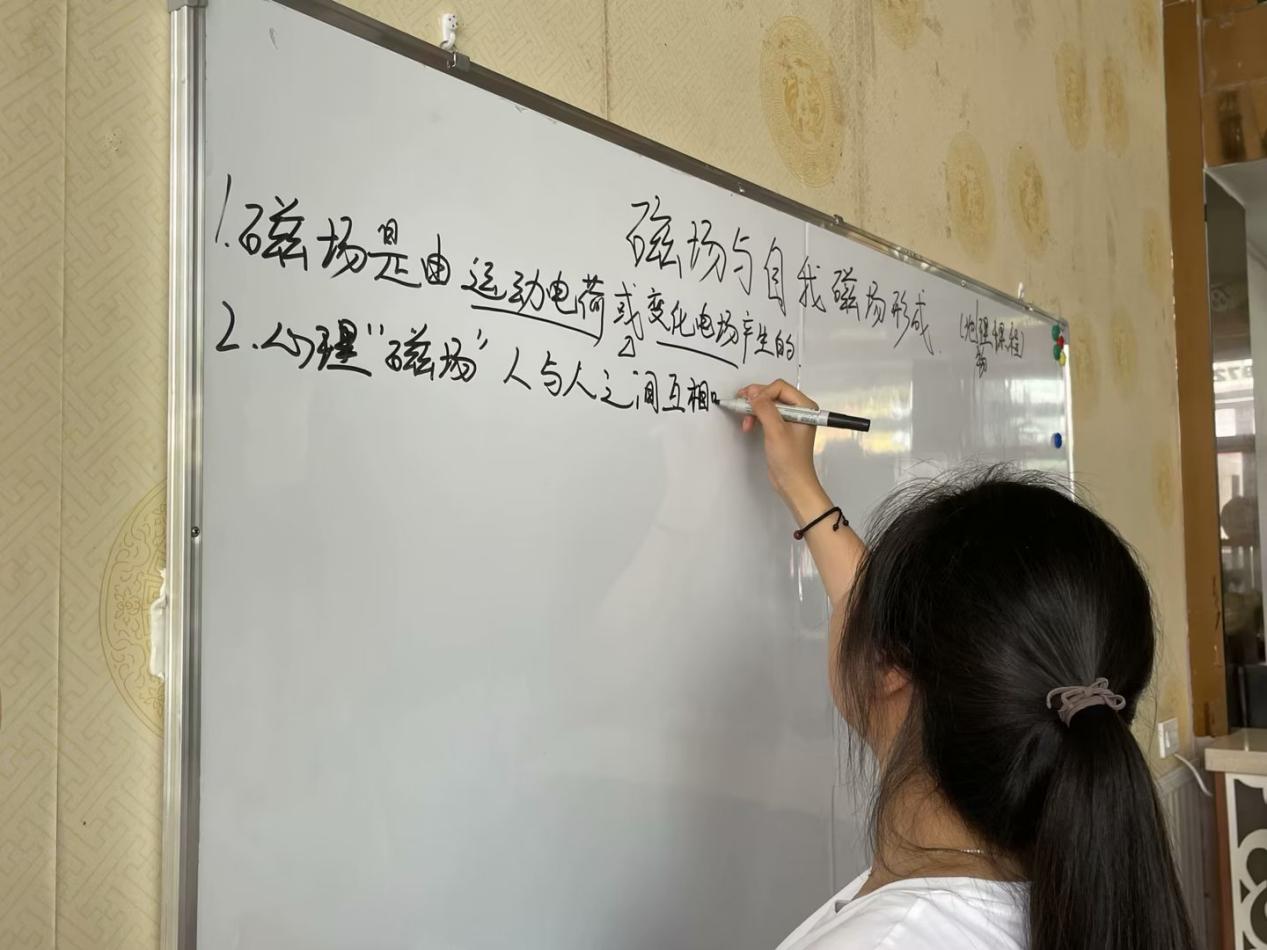 磁场与自我磁场形成.
(地理课程)
物
1.磁场是由运动电荷或变化电场产生的
2.心理"磁场"人与人之间互相
872